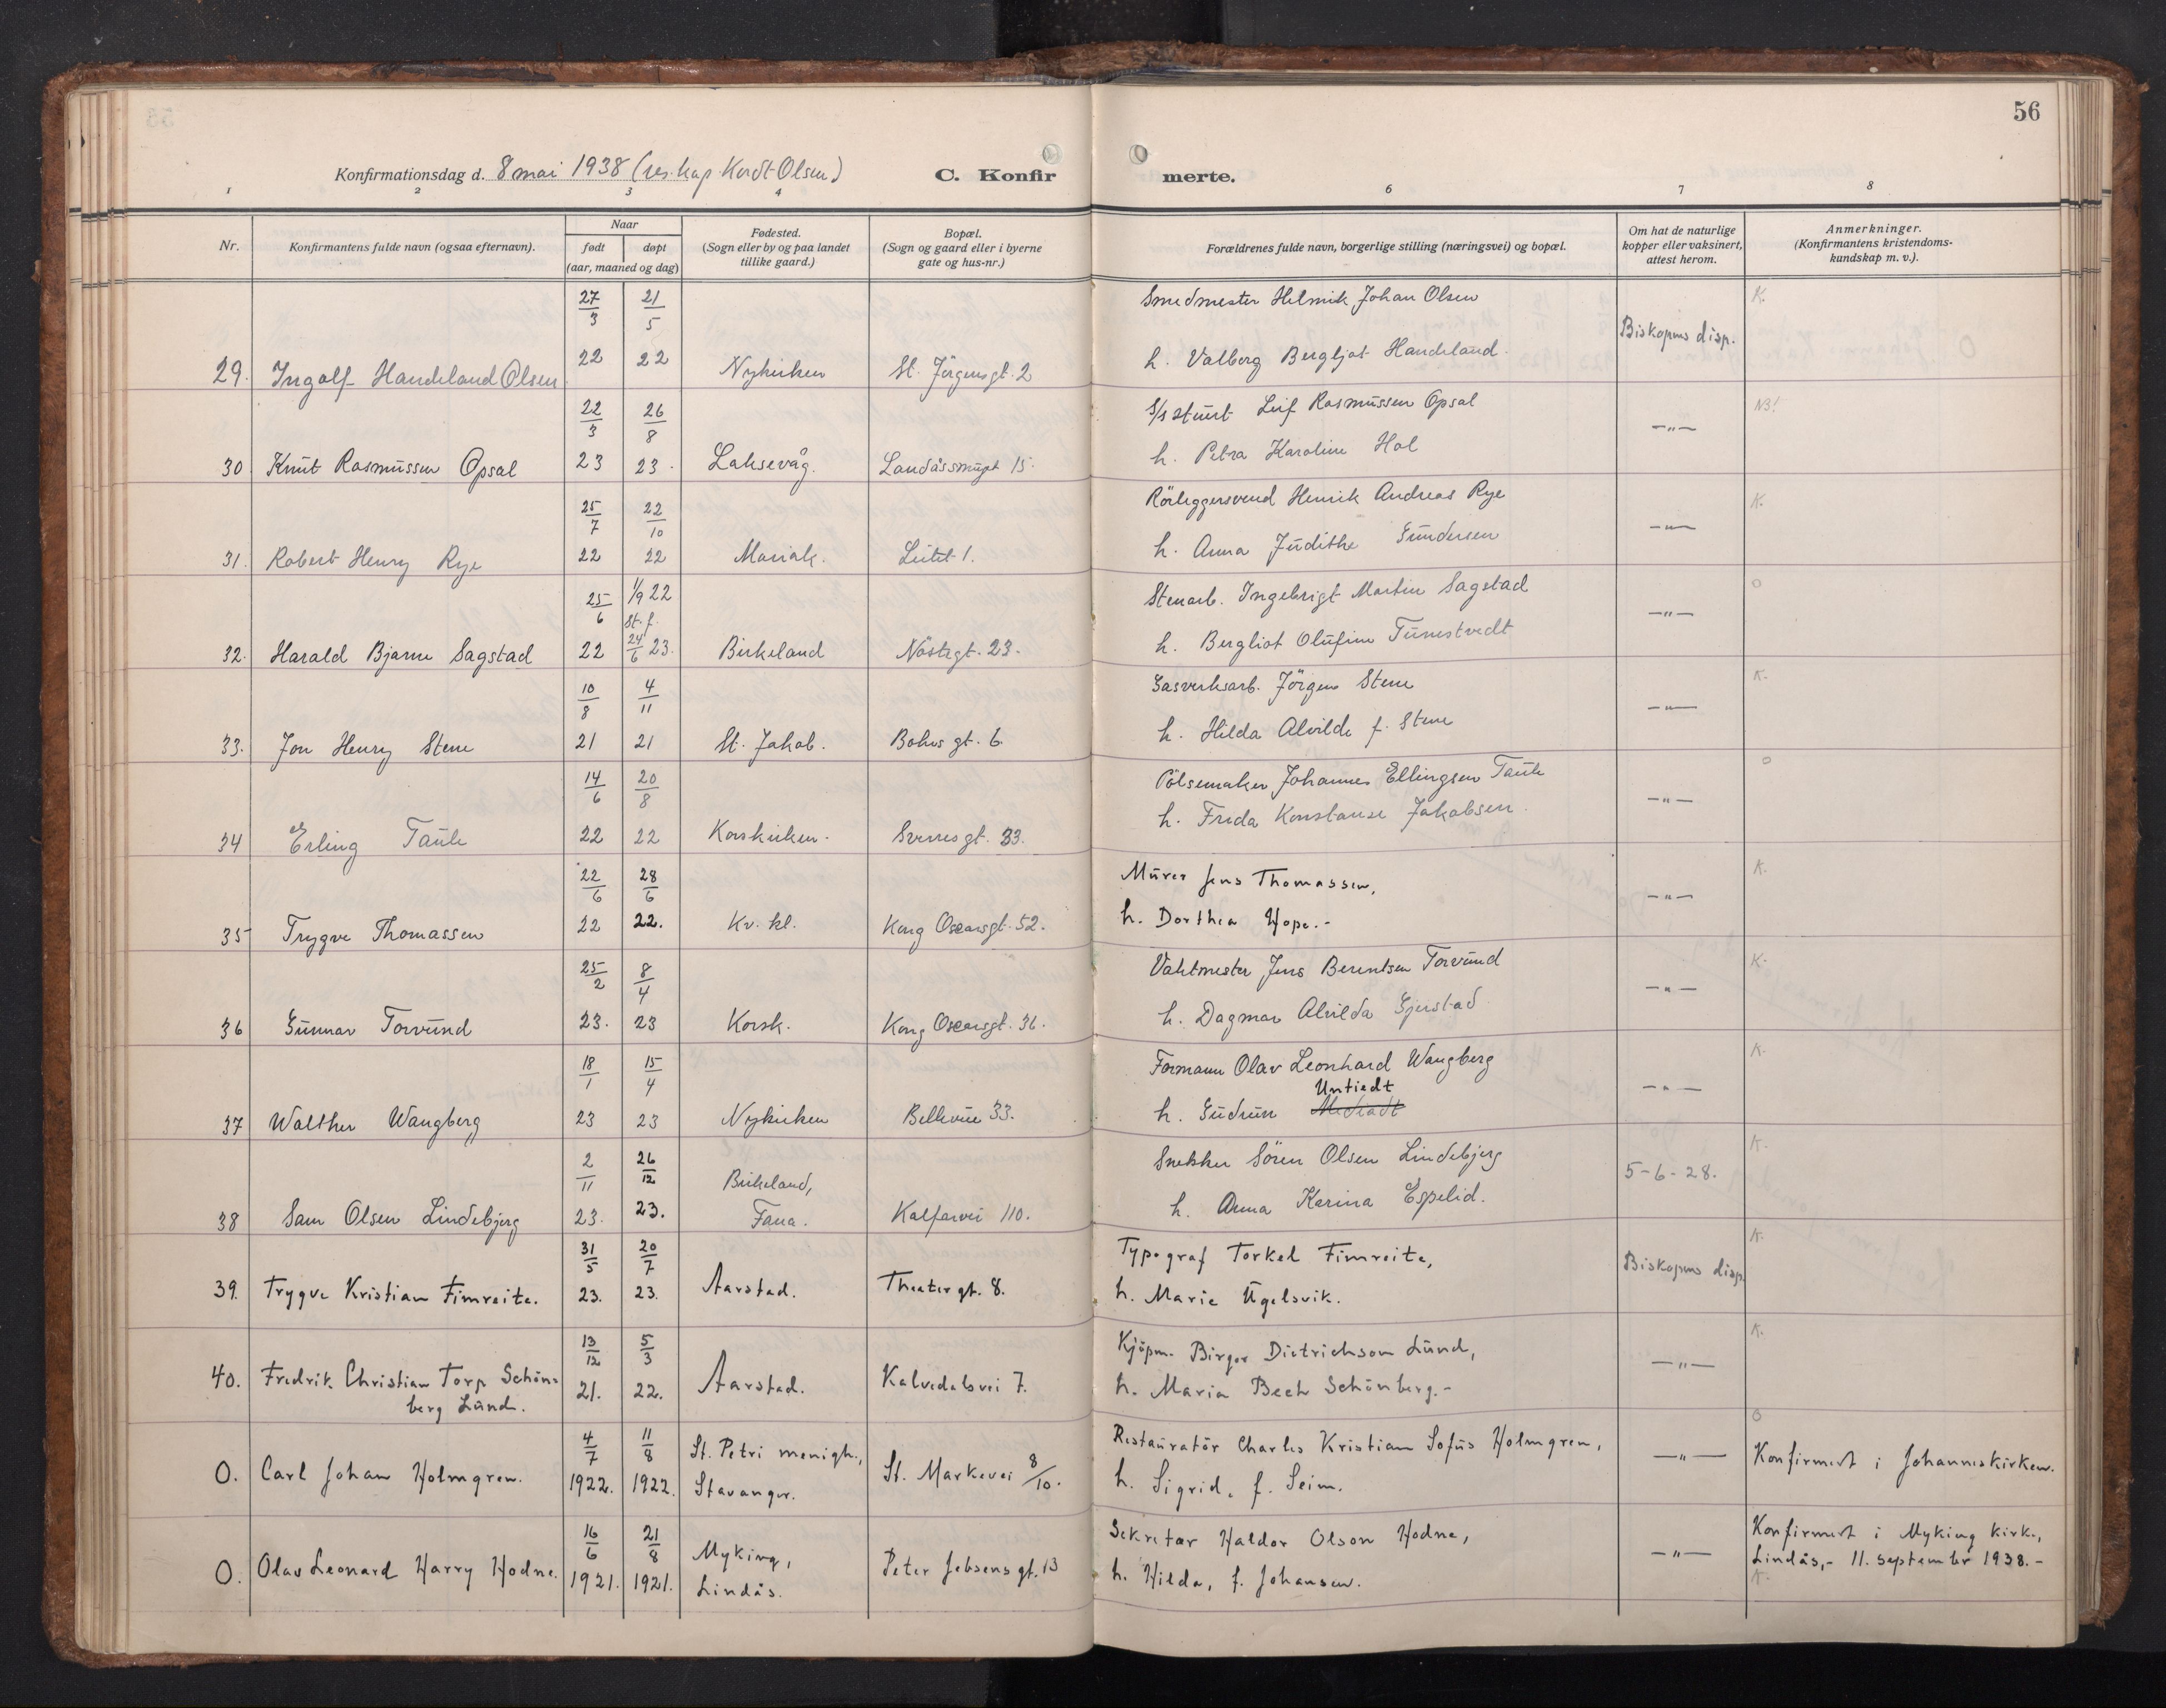 56
Konfirmationsdag d. 8 mai 1938 (res. kap. Kordt Olsen)
C. Konfir
merte.
1 2 3 4 6 7 8
Nr.
Konfirmantens fulde navn (ogsaa efternavn).
Naar
født
døpt
(aar, maaned og dag)
Fødested.
(Sogn eller by og paa landet
tillike gaard.)
Bopæl.
(Sogn og gaard eller i byerne
gate og hus-nr.)
Forældrenes fulde navn, borgerlige stilling (næringsvei) og bopæl.
Om hat de naturlige
kopper eller vaksinert,
attest herom.
Anmerkninger.
(Konfirmantens kristendoms-
kundskap m. v.).
27/3 21/5 Smedmester Helmik Johan Olsen K.
Biskopens disp.
29. Ingolf Handeland Olsen 22 22 Nykirken St. Jörgensgt. 2 h. Valborg Bergljot Handeland.
22/3 26/8 S/s stuert Leif Rasmussen Opsal —"— NB!
30. Knut Rasmussen Opsal 23 23. Laksevåg. Landåssmugt 15. h. Petra Karoline Hol
25/7 22/10 Rörleggersvend Henrik Andreas Rye —"— K.
31. Robert Henry Rye 22 22 Mariak. Leitet 1. h. Anna Judithe Gundersen
25/6 1/9 22 Stenarb. Ingebrigt Martin Sagstad —"— o
st. f.
32. Harald Bjarne Sagstad 22 24/6 23. Birkeland Nöstegt. 23. h. Bergliot Olufine Tunestvedt
10/8 4/11 Gasverksarb. Jörgen Stene —"— K.
33. Jon Henry Stene 21 21 St. Jakob. Bohus gt. 6. h. Hilda Alvilde f. Stene
14/6 20/8 Pölsemaker Johannes Ellingsen Taule —"— o
34 Erling Taule 22 22 Korskirken. Sverresgt. 33. h. Frida Konstanse Jakobsen.
22/6 28/6 Murer Jens Thomassen, —"— K.
35 Trygve Thomassen 22 22. Kv. kl. Kong Oscarsgt. 52. h. Dorthea Hope.-
25/2 8/4 Vaktmester Jens Berentsen Torvund —"— K.
36 Gunnar Torvund 23. 23 Korsk. Kong Oscarsgt. 36. h. Dagmar Alvilda Gjerstad
18/1 15/4 Formann Olav Leonhard Wangberg —"— K.
Untiedt
37 Walther Wangberg 23 23 Nykirken Bellevue 33. h. Gudrun
2/11 26/12 Birkeland, Snekker Sören Olsen Lindebjerg 5-6-28. K.
38 Sam Olsen Lindebjerg 23. 23. Fana. Kalfarvei 110. h. Anna Karina Espelid.
31/5 20/7 Typograf Torkel Fimreite, Biskopens disp. K.
39. Trygve Kristian Fimreite. 23. 23. Aarstad. Theatergt. 8. h. Marie Ugelsvik.
13/12 5/3 Kjöpm. Birger Dietrichson Lund, —"— K.
40. Fredrik Christian Torp Schön= 21. 22. Aarstad. Kalvedalsvei 7. h. Maria Bech Schönberg.-
berg Lund.
4/7 11/8 St. Petri menigh., Restauratör Charles Kristian Sofus Holmgren, o
0. Carl Johan Holmgren. 1922. 1922. Stavanger. St. Markevei 8/10. h. Sigrid, f. Seim. —"— Konfirmert i Johanneskirken.
16/6 21/8 Myking, Sekretær Haldor Olson Hodne, Konfirmert i Myking kirke,
0. Olav Leonard Harry Hodne. 1921. 1921. Lindås. Peter Jebsens gt. 13 h. Hilda, f. Johansen. —"— Lindås,- 11. september 1938.-
K.